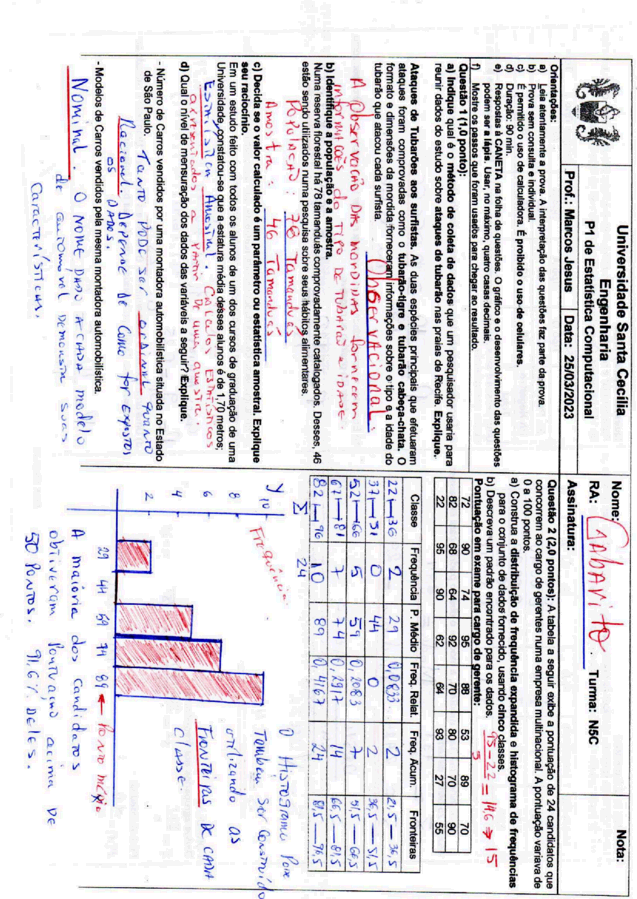 Universidade Santa Cecília
Engenharia
P1 de Estatística Computacional
Prof.: Marcos Jesus Data: 25/03/2023
Nome: Gabarito. Nota:
RA: Turma: N5C
Assinatura:
Orientações:
a) Leia atentamente a prova. A interpretação das questões faz parte da prova.
b) Prova sem consulta e individual.
c) É permitido o uso de calculadora. É proibido o uso de celulares.
d) Duração: 90 min.
e) Respostas à CANETA na folha de questões. O gráfico e o desenvolvimento das questões
podem ser a lápis. Usar, no máximo, quatro casas decimais.
f) Mostre os passos que foram usados para chegar ao resultado.
Questão 1 (1,0 ponto):
a) Indique qual é o método de coleta de dados que um pesquisador usaria para
reunir dados do estudo sobre ataques de tubarão nas praias de Recife. Explique.
Ataques de Tubarões aos surfistas. As duas espécies principais que efetuaram
ataques foram comprovadas como o tubarão-tigre e tubarão cabeça-chata. O
formato e dimensões da mordida forneceram informações sobre o tipo e a idade do
tubarão que atacou cada surfista.
Observacional
A Observação das mordidas fornecem
informações do tipo de tubarão e idade.
b) Identifique a população e a amostra.
Numa reserva florestal há 78 tamanduás comprovadamente catalogados. Desses, 46
estão sendo utilizados numa pesquisa sobre seus hábitos alimentares.
População: 78 Tamanduás
Amostra: 46 Tamanduás
c) Decida se o valor calculado é um parâmetro ou estatística amostral. Explique
seu raciocínio.
Em um estudo feito com todos os alunos de um dos cursos de graduação de uma
Universidade, constatou-se que a estatura média desses alunos é de 1,70 metros;
Estatística Amostral. Calculos Estatísticos
a partir de uma amostra.
d) Qual o nível de mensuração dos dados das variáveis a seguir? Explique.
- Número de Carros vendidos por uma montadora automobilística situada no Estado
de São Paulo.
Tanto pode ser ordinal quanto
Racional. Depende de como for expostos
os dados.
- Modelos de Carros vendidos pela mesma montadora automobilística.
Nominal. O nome dado a cada modelo
de automóvel demonstra suas
características.
Questão 2 (2,0 pontos): A tabela a seguir exibe a pontuação de 24 candidatos que
concorrem ao cargo de gerentes numa empresa multinacional. A pontuação variava de
0 a 100 pontos.
a) Construa a distribuição de frequência expandida e histograma de frequências
para o conjunto de dados fornecido, usando cinco classes.
b) Descreva um padrão encontrado para os dados.
95-22 = 14,6 → 15
5
Pontuação em exame para cargo de gerente:
72 90 74 95 88 53 89 70
82 68 64 92 70 80 70 90
22 95 90 62 64 93 27 55
Classe Frequência P. Médio Freq. Relat. Freq. Acum. Fronteiras
22 — 36 2 29 0,0833 2 21,5 — 36,5
37 — 51 0 44 0 2 36,5 — 51,5
52 — 66 5 59 0,2083 7 51,5 — 66,5
67 — 81 7 74 0,2917 14 66,5 — 81,5
82 — 96 10 89 0,4167 24 81,5 — 96,5
Σ 24
y
Frequência
10
8
6
4
2
29 44 59 74 89 ← Ponto médio
O Histograma pode
também ser construído
utilizando as
Fronteiras de cada
classe.
A maioria dos candidatos
obtiveram pontuação acima de
50 pontos. 91,67% deles.